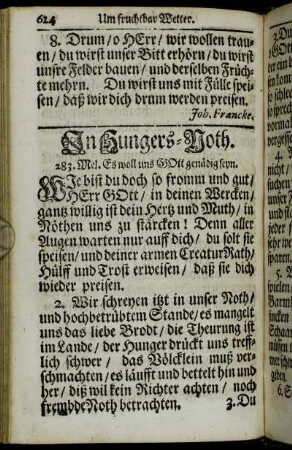 624 Um fruchtbar Wetter.
8. Drum/ o HErr/ wir wollen trau-
en/ du wirst unser Bitt erhörn/ du wirst
unsre Felder bauen/ und derselben Früch-
te mehrn. Du wirst uns mit Fülle spei-
sen/ daß wir dich drum werden preisen.
Joh. Francke.
In Hungers-Noth.
283. Mel. Es woll uns GOtt genädig seyn.
WIe bist du doch so fromm und gut/
HErr GOtt/ in deinen Wercken/
gantz willig ist dein Hertz und Muth/ in
Nöthen uns zu stärcken! Denn aller
Augen warten nur auff dich/ du solt sie
speisen/ und deiner armen Creatur Rath/
Hülff und Trost erweisen/ daß sie dich
wieder preisen.
2. Wir schreyen itzt in unser Noth/
und hochbetrübtem Stande/ es mangelt
uns das liebe Brodt/ die Theurung ist
im Lande/ der Hunger drückt uns treff-
lich schwer/ das Völcklein muß ver-
schmachten/ es läufft und bettelt hin und
her/ diß wil kein Richter achten/ noch
frembde Noth betrachten. 3. Du